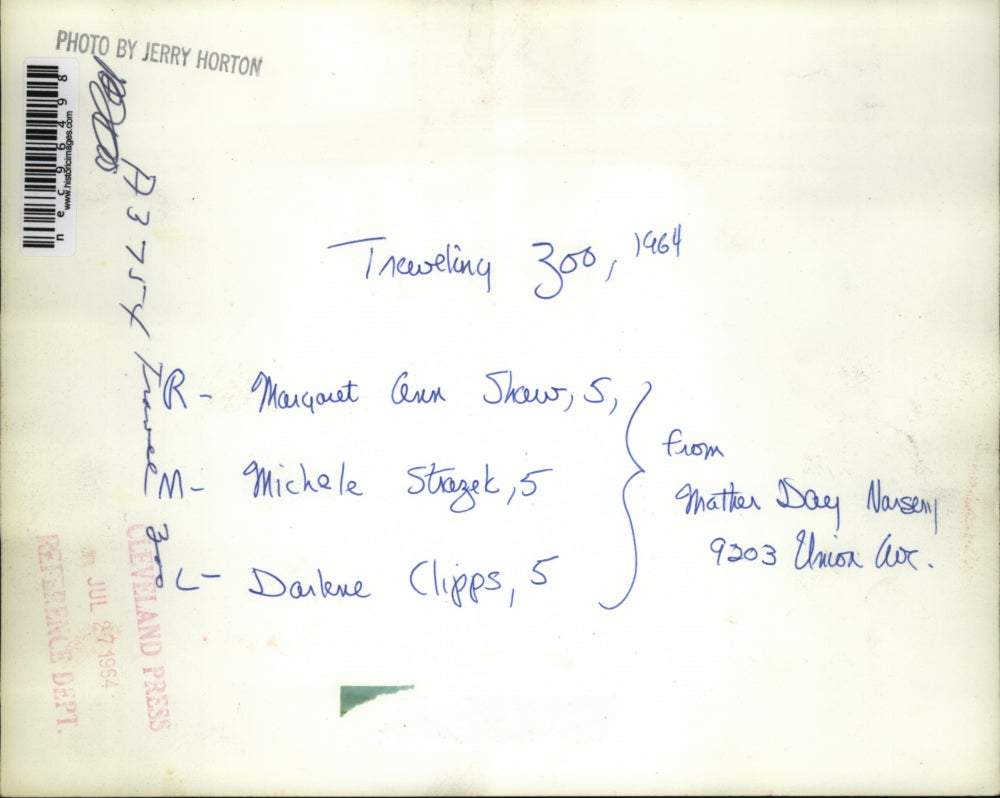 PHOTO BY JERRY HORTON
necq96498
www.historicimages.com
A3754 Travel Zoo
Traveling Zoo, 1964
R- Margaret Ann Shaw, 5,
M- Michele Strazek, 5
L- Darlene Clipps, 5
from
Mather Day Nursery
9203 Union Ave.
CLEVELAND PRESS
JUL 27 1964
REFERENCE DEPT.